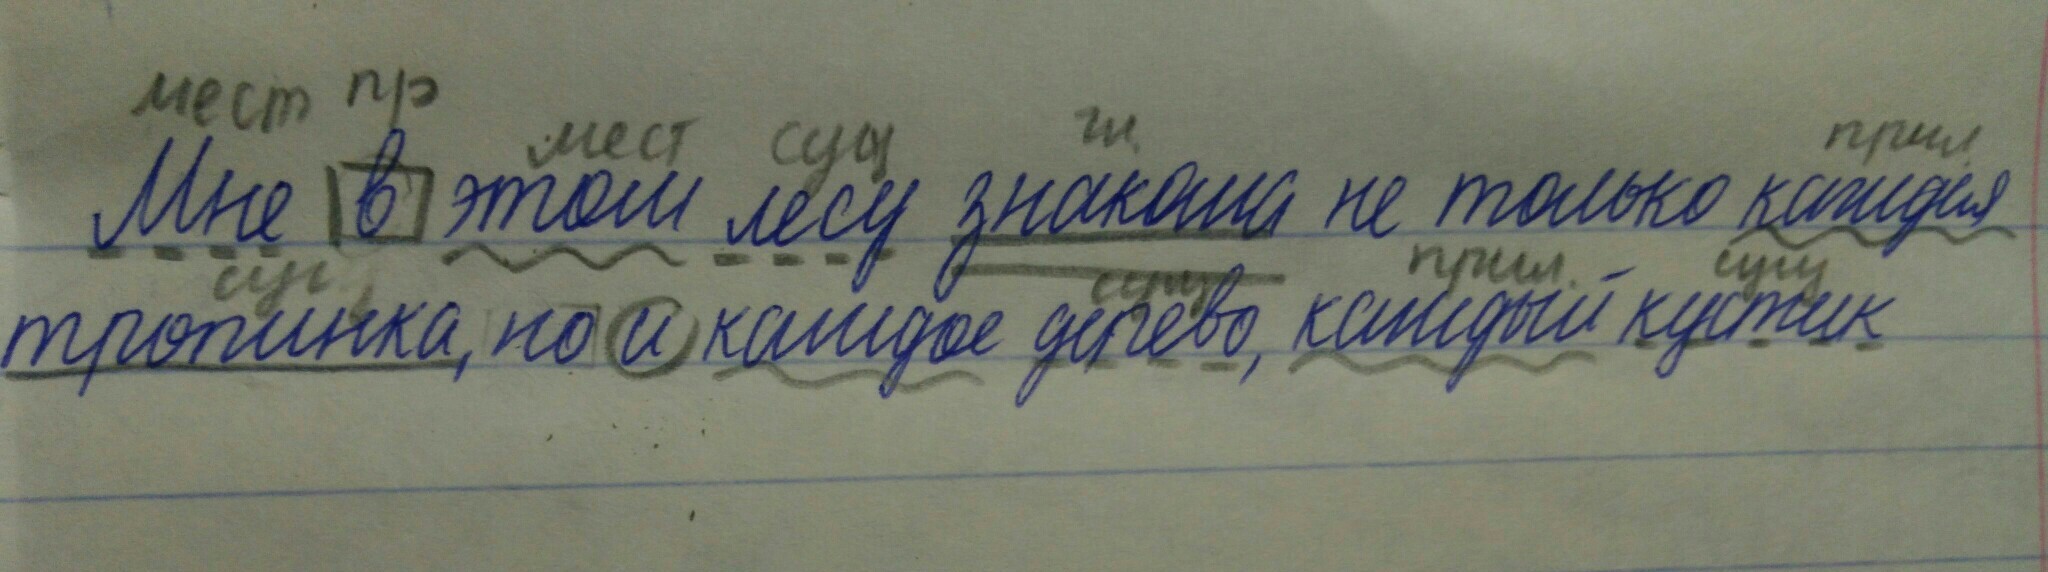 мест пр мест сущ гл. прил.
Мне в этом лесу знакома не только каждая
сущ. сущ прил. сущ
тропинка, но и каждое дерево, каждый кустик